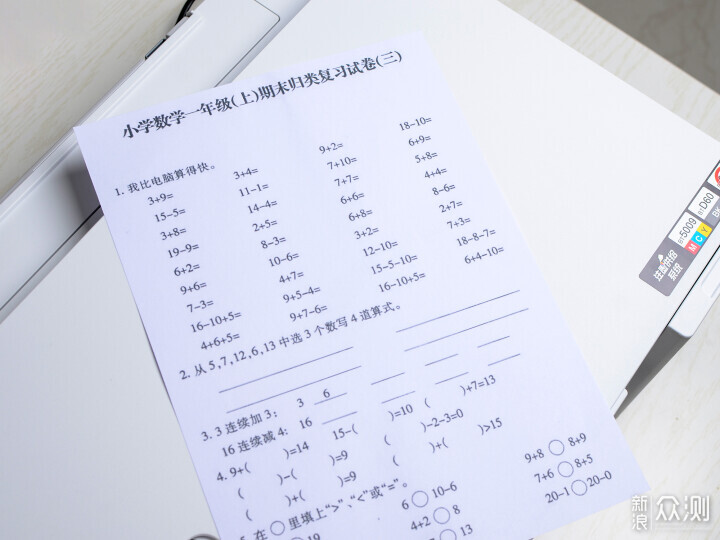 小学数学一年级(上)期末归类复习试卷(三)
1. 我比电脑算得快。
3+9= 3+4= 9+2= 18-10=
15-5= 11-1= 7+10= 6+9=
3+8= 14-4= 7+7= 5+8=
19-9= 2+5= 6+6= 4+4=
6+2= 8-3= 6+8= 8-6=
9+6= 10-6= 3+2= 2+7=
7-3= 4+7= 12-10= 7+3=
16-10+5= 9+5-4= 15-5-10= 18-8-7=
4+6+5= 9+7-6= 16-10+5= 6+4-10=
2. 从 5,7,12,6,13 中选 3 个数写 4 道算式。
3. 3 连续加 3: 3 6
16 连续减 4: 16
4. 9+( )=14 15-( )=10 ( )+7=13
( )-( )=9 ( )-2-3=0
( )+( )=9 ( )+( )>15
在○里填上“>”、“<”或“=”。
6○10-6 9+8○8+9
4+2○8 7+6○8+5
20-1○20-0
19
13
BT-5009
BT-D60
M C Y
BK
新浪 众测